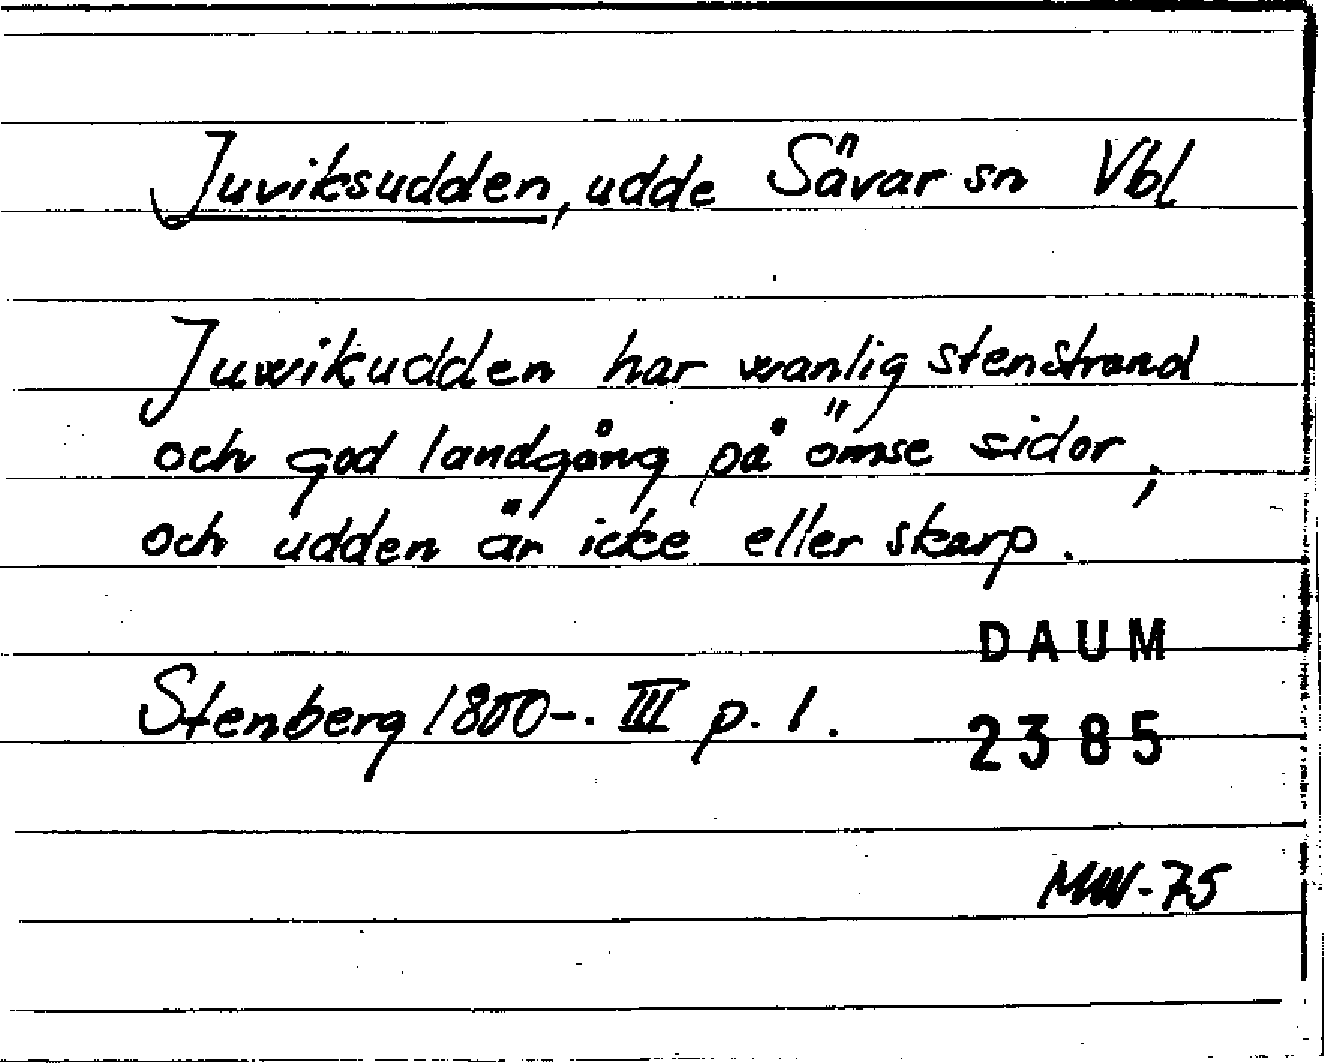 Juviksudden, udde Sävar sn Vbl
Juwikudden har wanlig stenstrand
och god landgång på ömse sidor,
och udden är icke eller skarp.
DAUM
Stenberg 1800-. III p. 1.
2385
MW-75